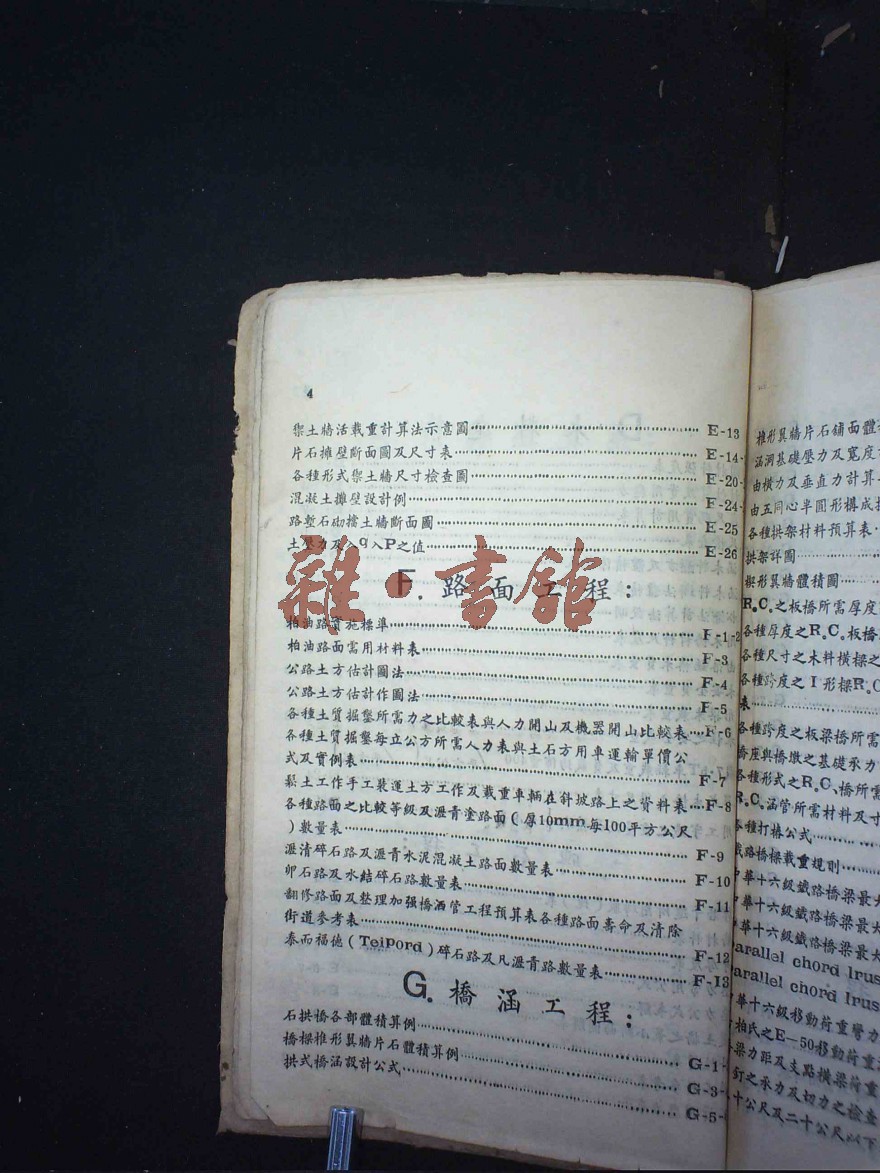 4
禦土牆活載重計算法示意圖 E-13
片石擁壁斷面圖及尺寸表 E-14-
各種形式禦土牆尺寸檢查圖 E-20-
混凝土擁壁設計例 F-24-
路塹石砌擋土牆斷面圖 E-25
土壓力及 P之值 E-26
雜·書館
F. 路面工程:
柏油路實施標準 F-1-2
柏油路面需用材料表 F-3
公路土方估計圖法 F-4
公路土方估計作圖法 F-5
各種土質掘鑿所需力之比較表與人力開山及機器開山比較表 F-6
各種土質掘鑿每立公方所需人力表與土石方用車運輸單價公
式及實例表 F-7
鬆土工作手工裝運土方工作及載重車輛在斜坡路上之資料表 F-8
各種路面之比較等級及瀝青塗路面(厚10mm每100平方公尺
)數量表 F-9
瀝清碎石路及瀝青水泥混凝土路面數量表 F-10
卵石路及水結碎石路數量表 F-11
翻修路面及整理加强橋涵管工程預算表各種路面壽命及清除
街道參考表 F-12
泰而福德(Telpord)碎石路及凡瀝青路數量表 F-13
G. 橋涵工程:
石拱橋各部體積算例 G-1-
橋樑椎形翼牆片石體積算例 G-3-
拱式橋涵設計公式 G-5-
椎形翼牆片石鋪面體
涵洞基礎壓力及寬度
由橫力及垂直力計算
由五同心半圓形構成
各種拱架材料預算表
拱架詳圖
楔形翼牆體積圖
R.C.之板橋所需厚度
各種厚度之R.C.板橋
各種尺寸之木料橫樑之
各種跨度之I形樑R.C
表
各種跨度之板梁橋所需
橋座與橋墩之基礎承力
各種形式之R.C.橋所需
R.C.涵管所需材料及尺寸
各種打樁公式
鐵路橋樑載重規則
中華十六級鐵路橋梁最大
中華十六級鐵路橋梁最大
中華十六級鐵路橋梁最大
Parallel chord Trus
Parallel chord Trus
中華十六級移動荷重彎力
柏氏之E-50移動荷重
梁力距及支點橫梁荷重
釘之承力及切力之檢查
十公尺及二十公尺以下